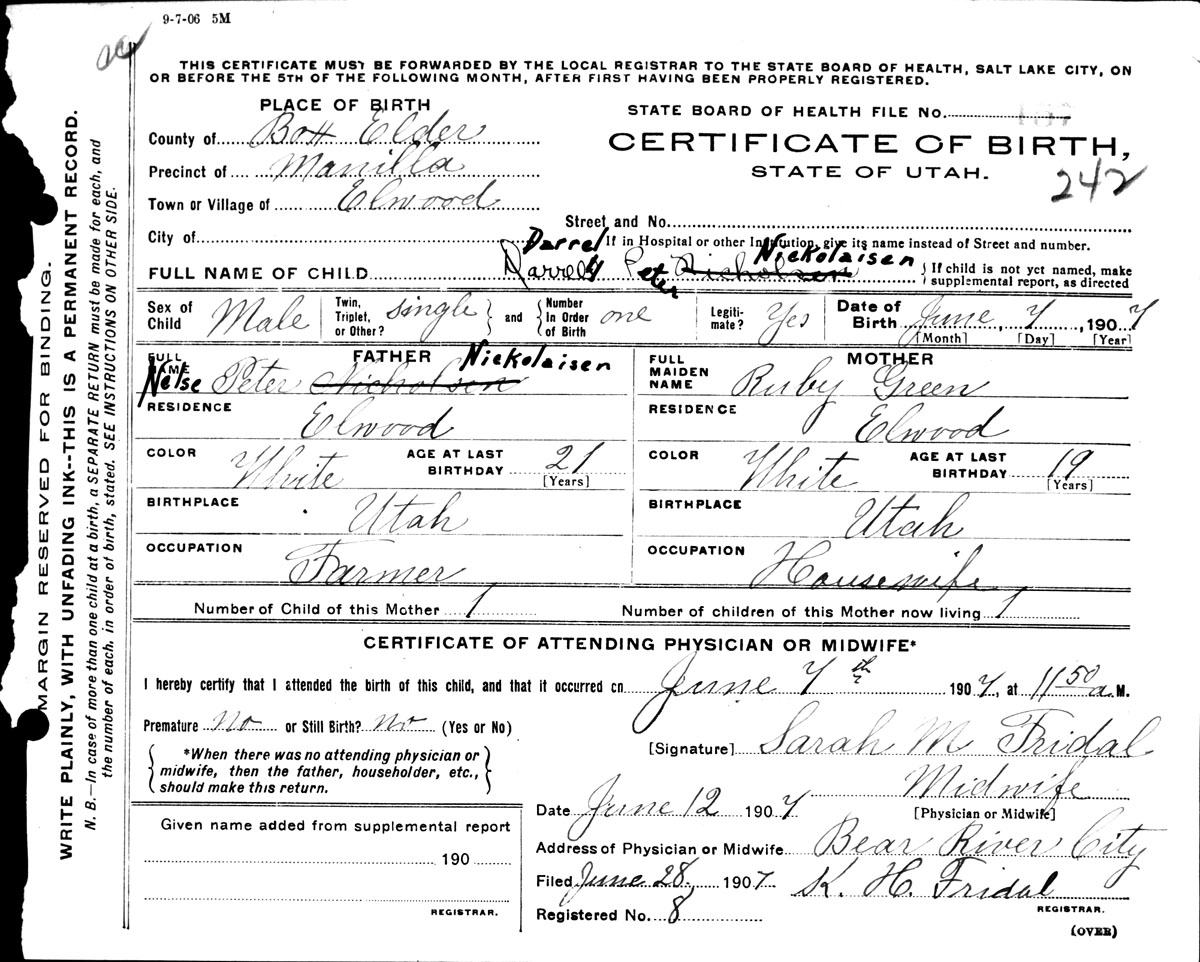 9-7-06 5M
THIS CERTIFICATE MUST BE FORWARDED BY THE LOCAL REGISTRAR TO THE STATE BOARD OF HEALTH, SALT LAKE CITY, ON
OR BEFORE THE 5TH OF THE FOLLOWING MONTH, AFTER FIRST HAVING BEEN PROPERLY REGISTERED.
MARGIN RESERVED FOR BINDING.
WRITE PLAINLY, WITH UNFADING INK--THIS IS A PERMANENT RECORD.
N. B.—In case of more than one child at a birth, a SEPARATE RETURN must be made for each, and
the number of each, in order of birth, stated. SEE INSTRUCTIONS ON OTHER SIDE.
PLACE OF BIRTH
County of Box Elder
Precinct of Manilla
Town or Village of Elwood
City of
STATE BOARD OF HEALTH FILE No.
CERTIFICATE OF BIRTH,
STATE OF UTAH.
242
Street and No.
If in Hospital or other Institution, give its name instead of Street and number.
Darrel Nickolaisen
FULL NAME OF CHILD Darrell Peter Nicholsen
If child is not yet named, make
supplemental report, as directed
Sex of Child Male
Twin, Triplet, or Other? single
and Number In Order of Birth one
Legitimate? Yes
Date of Birth June, 7, 1907
[Month] [Day] [Year]
FATHER
FULL NAME Nelse Peter Nicholsen Nickolaisen
RESIDENCE Elwood
COLOR White AGE AT LAST BIRTHDAY 21
[Years]
BIRTHPLACE Utah
OCCUPATION Farmer
MOTHER
FULL MAIDEN NAME Ruby Green
RESIDENCE Elwood
COLOR White AGE AT LAST BIRTHDAY 19
[Years]
BIRTHPLACE Utah
OCCUPATION Housewife
Number of Child of this Mother 1 Number of children of this Mother now living 1
CERTIFICATE OF ATTENDING PHYSICIAN OR MIDWIFE*
I hereby certify that I attended the birth of this child, and that it occurred on June 7th 1907, at 11 50 a. M.
Premature No or Still Birth? No (Yes or No)
*When there was no attending physician or
midwife, then the father, householder, etc.,
should make this return.
[Signature] Sarah M Fridal
Midwife
[Physician or Midwife]
Date June 12 1907
Address of Physician or Midwife Bear River City
Filed June 28, 1907. K. H. Fridal
REGISTRAR.
Registered No. 8
Given name added from supplemental report
190
REGISTRAR.
(OVER)